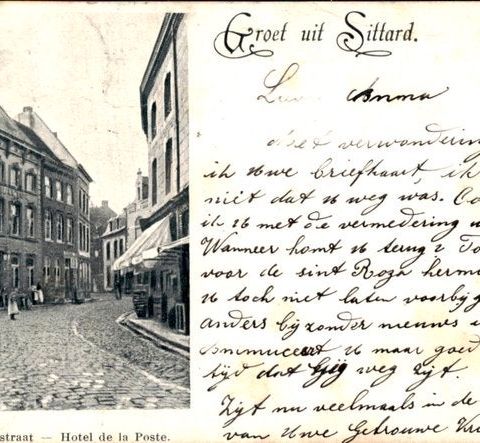 Groet uit Sittard.
Anna
Met verwondering
ik Uwe briefkaart, ik
niet dat U weg was.
ik U met de vermedering
Wanneer komt U terug?
voor de sint Roza
U toch niet laten voorbijg
anders bijzonder nieuws
U maar goed
tijd dat Gij weg zijt.
Zijt nu veelmaals in de
van Uwe Getrouwe
straat — Hotel de la Poste.